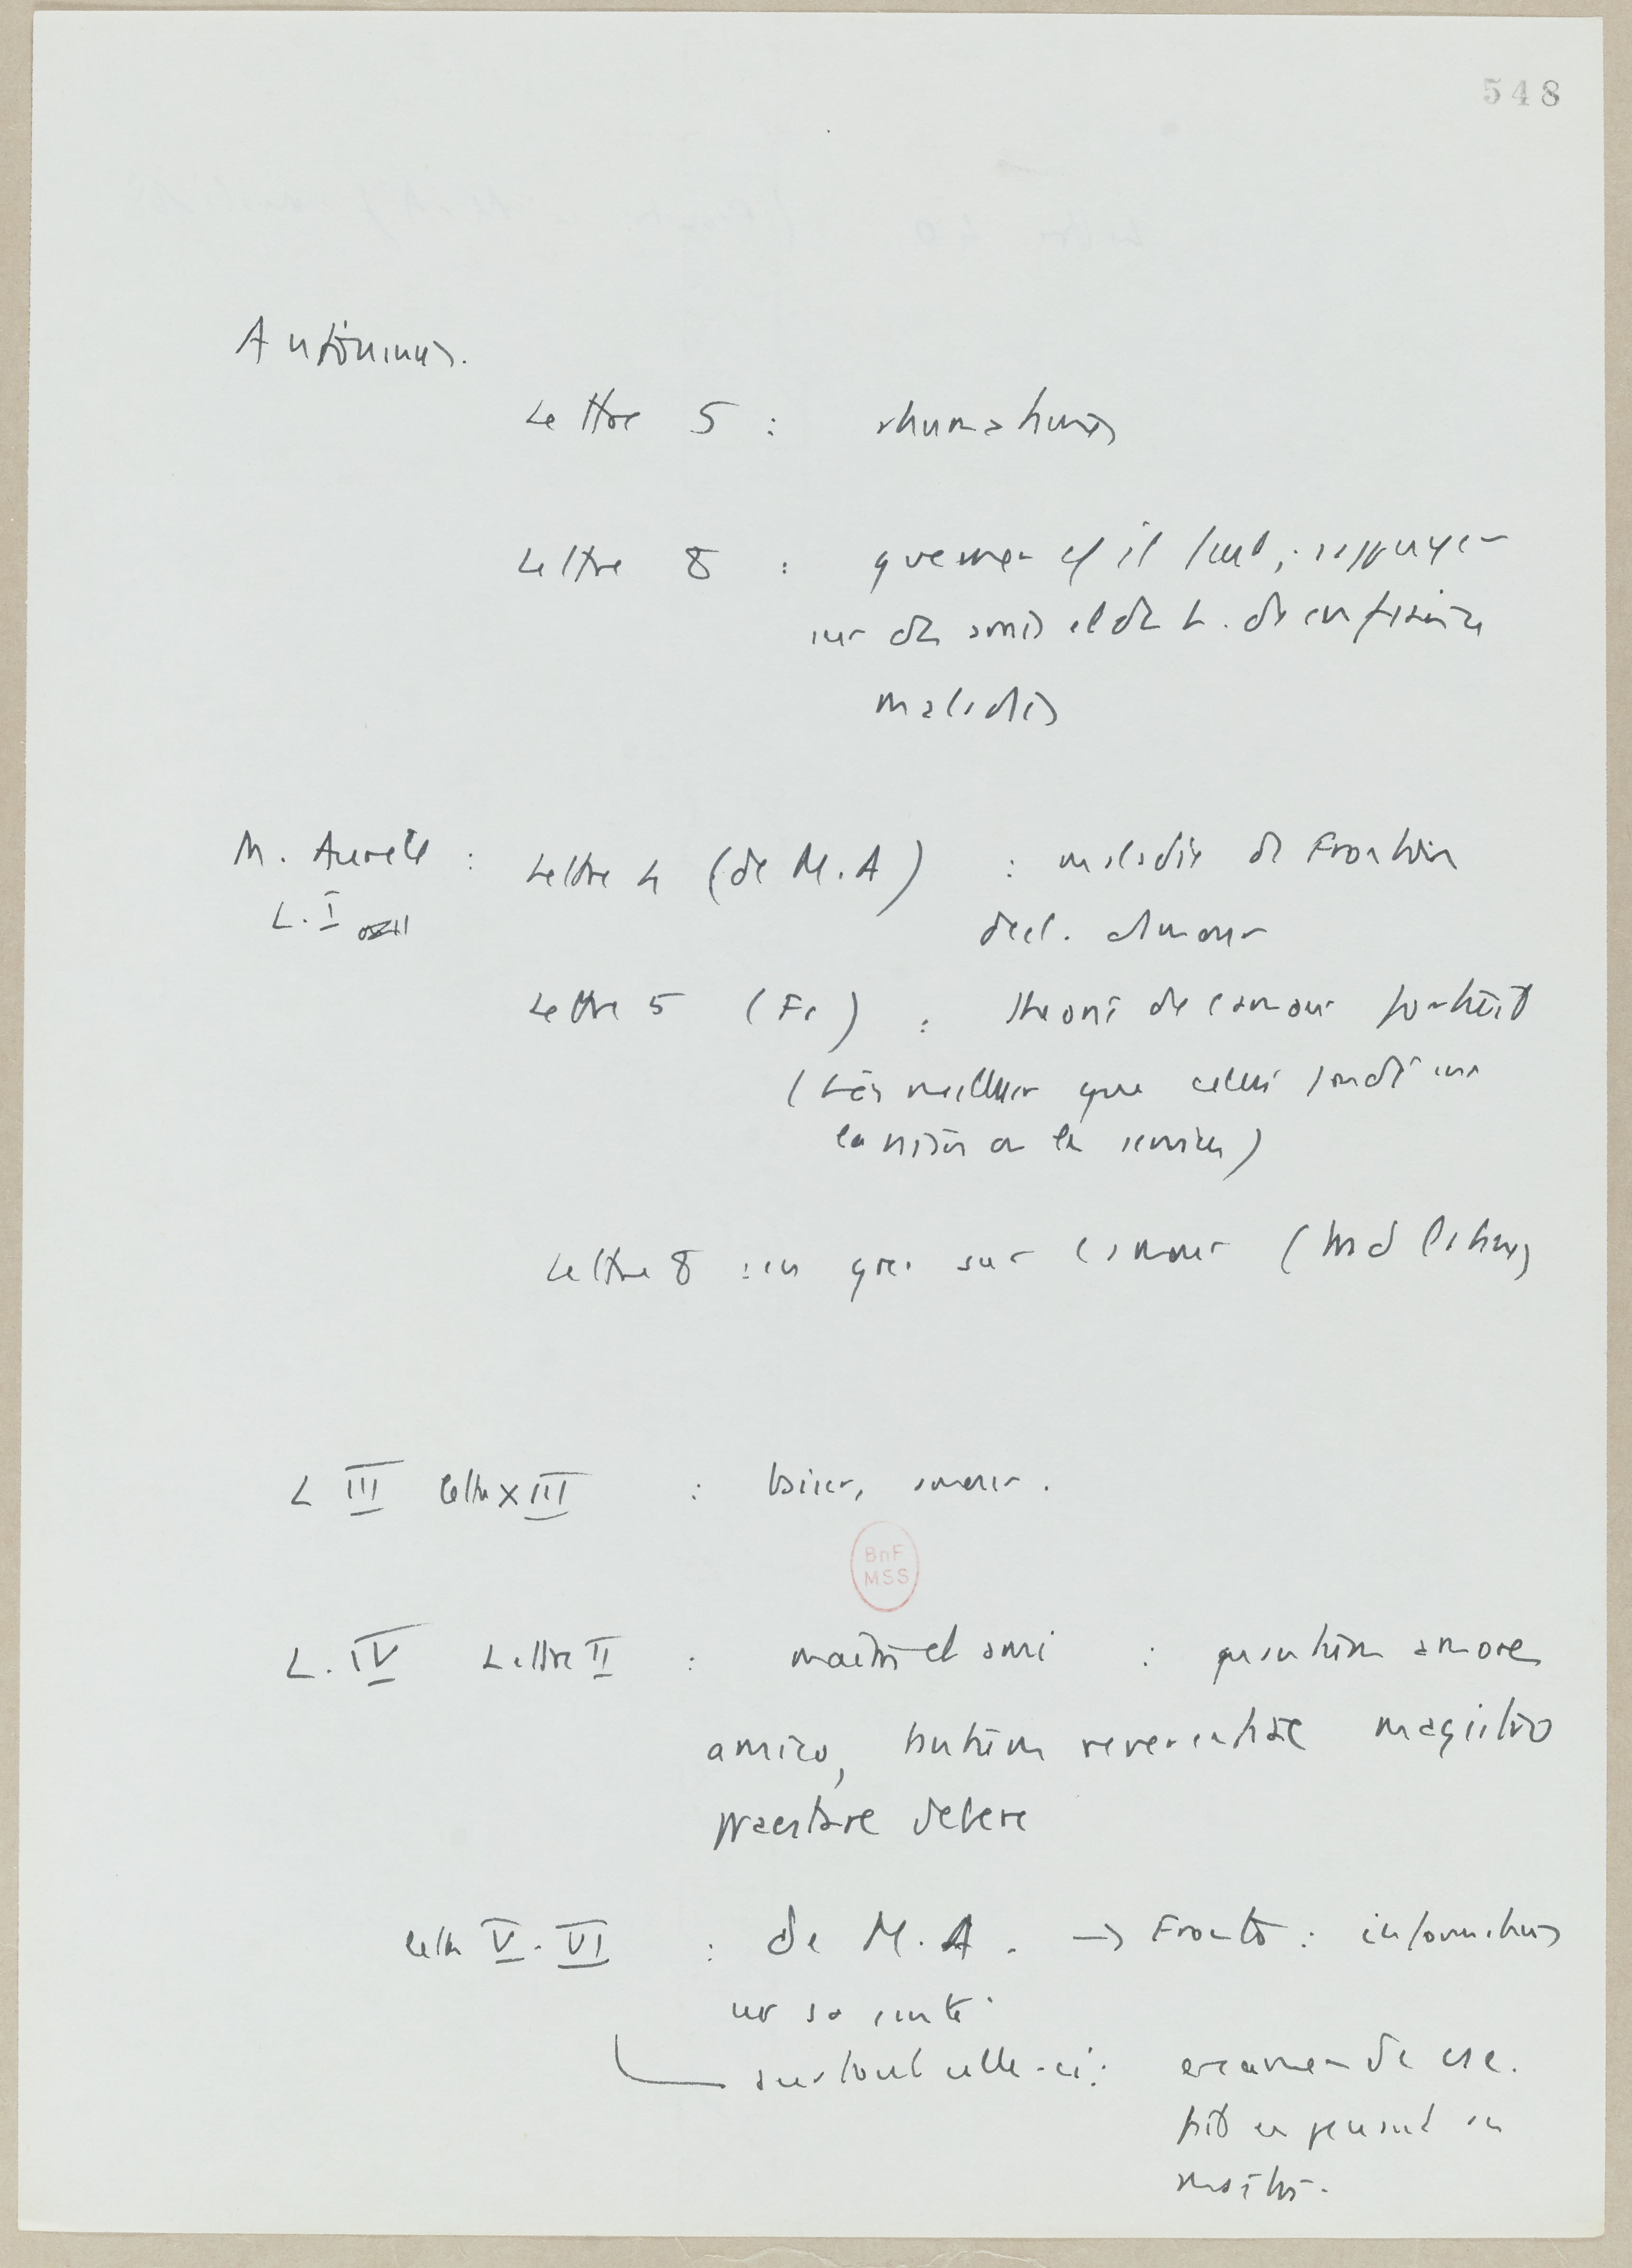 548
Antoninus.
Lettre 5 : rhumatismes
Lettre 8 : gouverner il faut, s'appuyer
sur des amis et des h. de confiance
maladies
M. Aurèle : Lettre 4 (de M.A) : maladie de Fronton
L. I
decl. d'amour
Lettre 5 (Fr) : théorie de l'amour
(très meilleur que celui fondé sur
la raison ou les services)
Lettre 8 : en grec sur l'amour (trad latine)
L III lettre XIII : baiser, amour.
L. IV Lettre II : maître et ami : quantum amoris
amico, tantum reverentiae magistro
praestare debere
lettre V. VI : de M.A. → Fronto : informations
sur sa santé
surtout celle-ci : examen de csc.
fait en pensant au
maître.